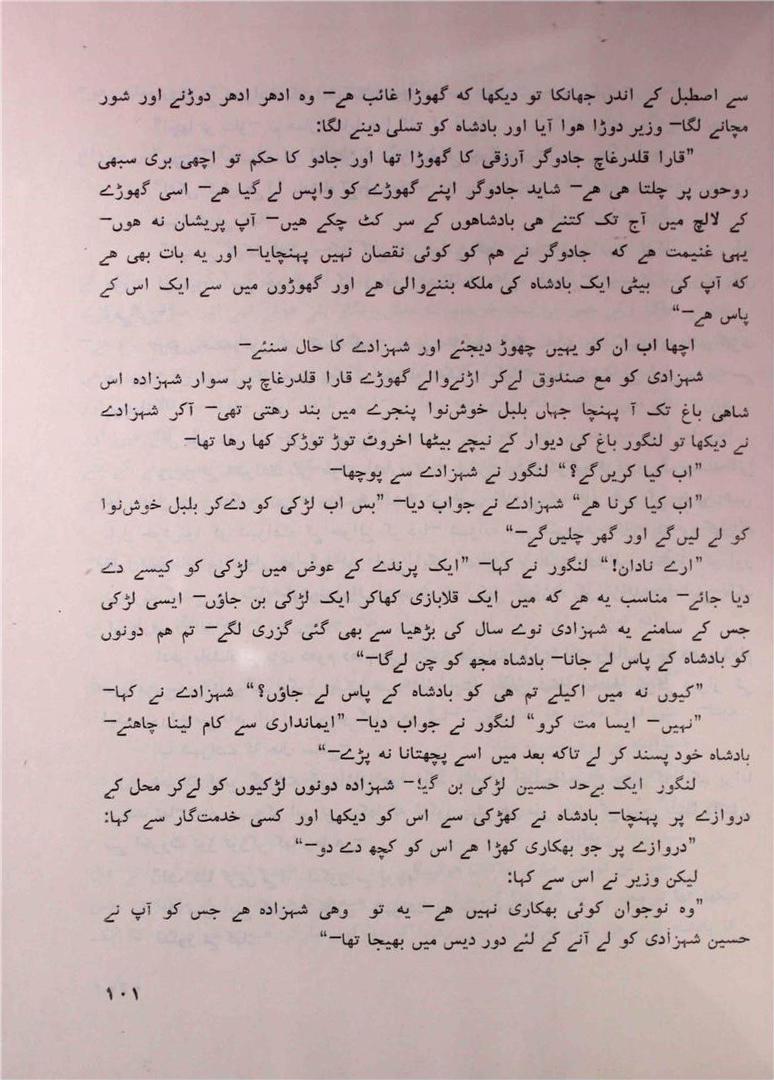 سے اصطبل کے اندر جھانکا تو دیکھا که گھوڑا غائب ھے— وہ ادھر ادھر دوڑنے اور شور
مچانے لگا— وزیر دوڑا ھوا آیا اور بادشاہ کو تسلی دینے لگا:
”قارا قلدرغاچ جادوگر آرزقی کا گھوڑا تھا اور جادو کا حکم تو اچھی بری سبھی
روحوں پر چلتا ھی ھے— شاید جادوگر اپنے گھوڑے کو واپس لے گیا ھے— اسی گھوڑے
کے لالچ میں آج تک کتنے ھی بادشاھوں کے سر کٹ چکے ھیں— آپ پریشان نه ھوں—
یہی غنیمت ھے که جادوگر نے ھم کو کوئی نقصان نہیں پہنچایا— اور یه بات بھی ھے
که آپ کی بیٹی ایک بادشاہ کی ملکه بننےوالی ھے اور گھوڑوں میں سے ایک اس کے
پاس ھے—“
اچھا اب ان کو یہیں چھوڑ دیجئے اور شہزادے کا حال سنئے—
شہزادی کو مع صندوق لےکر اڑنےوالے گھوڑے قارا قلدرغاچ پر سوار شہزادہ اس
شاھی باغ تک آ پہنچا جہاں بلبل خوش‌نوا پنجرے میں بند رھتی تھی— آکر شہزادے
نے دیکھا تو لنگور باغ کی دیوار کے نیچے بیٹھا اخروٹ توڑ توڑکر کھا رھا تھا—
”اب کیا کریں‌گے؟“ لنگور نے شہزادے سے پوچھا—
”اب کیا کرنا ھے“ شہزادے نے جواب دیا— ”بس اب لڑکی کو دےکر بلبل خوش‌نوا
کو لے لیں‌گے اور گھر چلیں‌گے—“
”ارے نادان!“ لنگور نے کہا— ”ایک پرندے کے عوض میں لڑکی کو کیسے دے
دیا جائے— مناسب یه ھے که میں ایک قلابازی کھاکر ایک لڑکی بن جاؤں— ایسی لڑکی
جس کے سامنے یه شہزادی نوے سال کی بڑھیا سے بھی گئی گزری لگے— تم ھم دونوں
کو بادشاہ کے پاس لے جانا— بادشاہ مجھ کو چن لےگا—“
”کیوں نه میں اکیلے تم ھی کو بادشاہ کے پاس لے جاؤں؟“ شہزادے نے کہا—
”نہیں— ایسا مت کرو“ لنگور نے جواب دیا— ”ایمانداری سے کام لینا چاھئے—
بادشاہ خود پسند کر لے تاکه بعد میں اسے پچھتانا نه پڑے—“
لنگور ایک بےحد حسین لڑکی بن گیا— شہزادہ دونوں لڑکیوں کو لےکر محل کے
دروازے پر پہنچا— بادشاہ نے کھڑکی سے اس کو دیکھا اور کسی خدمت‌گار سے کہا:
”دروازے پر جو بھکاری کھڑا ھے اس کو کچھ دے دو—“
لیکن وزیر نے اس سے کہا:
”وہ نوجوان کوئی بھکاری نہیں ھے— یه تو وھی شہزادہ ھے جس کو آپ نے
حسین شہزادی کو لے آنے کے لئے دور دیس میں بھیجا تھا—“
۱۰۱